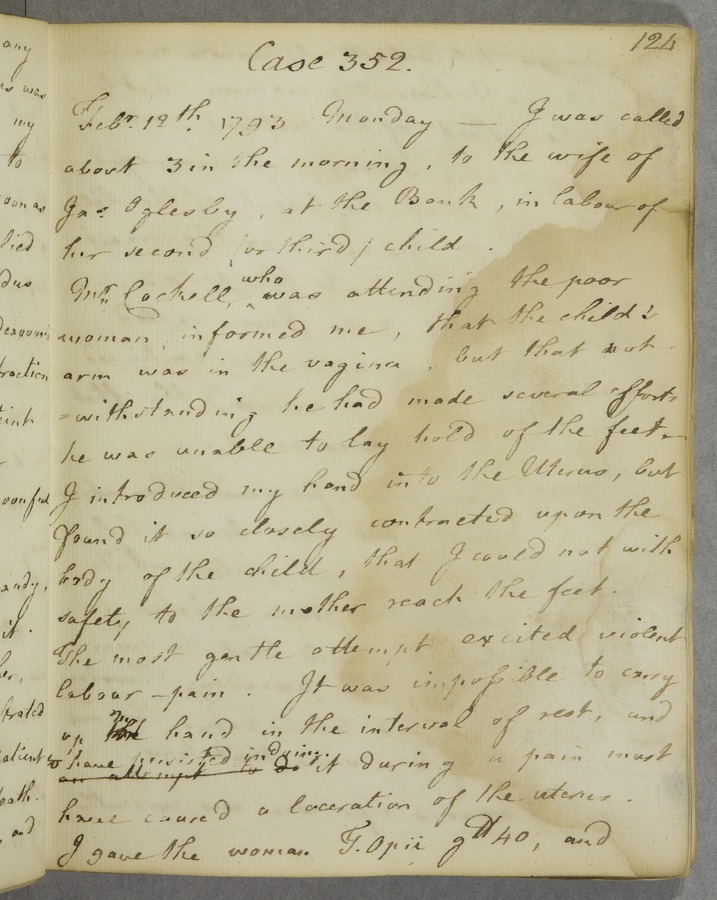 124
Case 352.
Febr. 12th 1793 Monday — I was called
about 3 in the morning, to the wife of
Jas Oglesby, at the Bank, in labour of
her second (or third) child.
Mr. Cockell, who was attending the poor
woman, informed me, that the child's
arm was in the vagina, but that not-
=withstanding he had made several efforts
he was unable to lay hold of the feet.
I introduced my hand into the Uterus, but
found it so closely contracted upon the
body of the child, that I could not with
safety to the mother reach the feet.
The most gentle attempt excited violent
labour-pain. It was impossible to carry
up my hand in the interval of rest, and
to have persisted in doing
an attempt to do it during a pain must
have caused a laceration of the uterus.
I gave the woman T. Opii gtt 40, and
any
was
my
to
soon as
lied
dus
raction
tient
vonful
andy,
it.
trated
patient
eath.
and